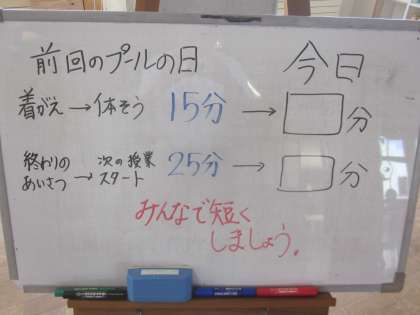 前回のプールの日 今日
着がえ→体そう 15分 → □分
終わりの 次の授業
あいさつ → スタート 25分 → □分
みんなで短く
しましょう。